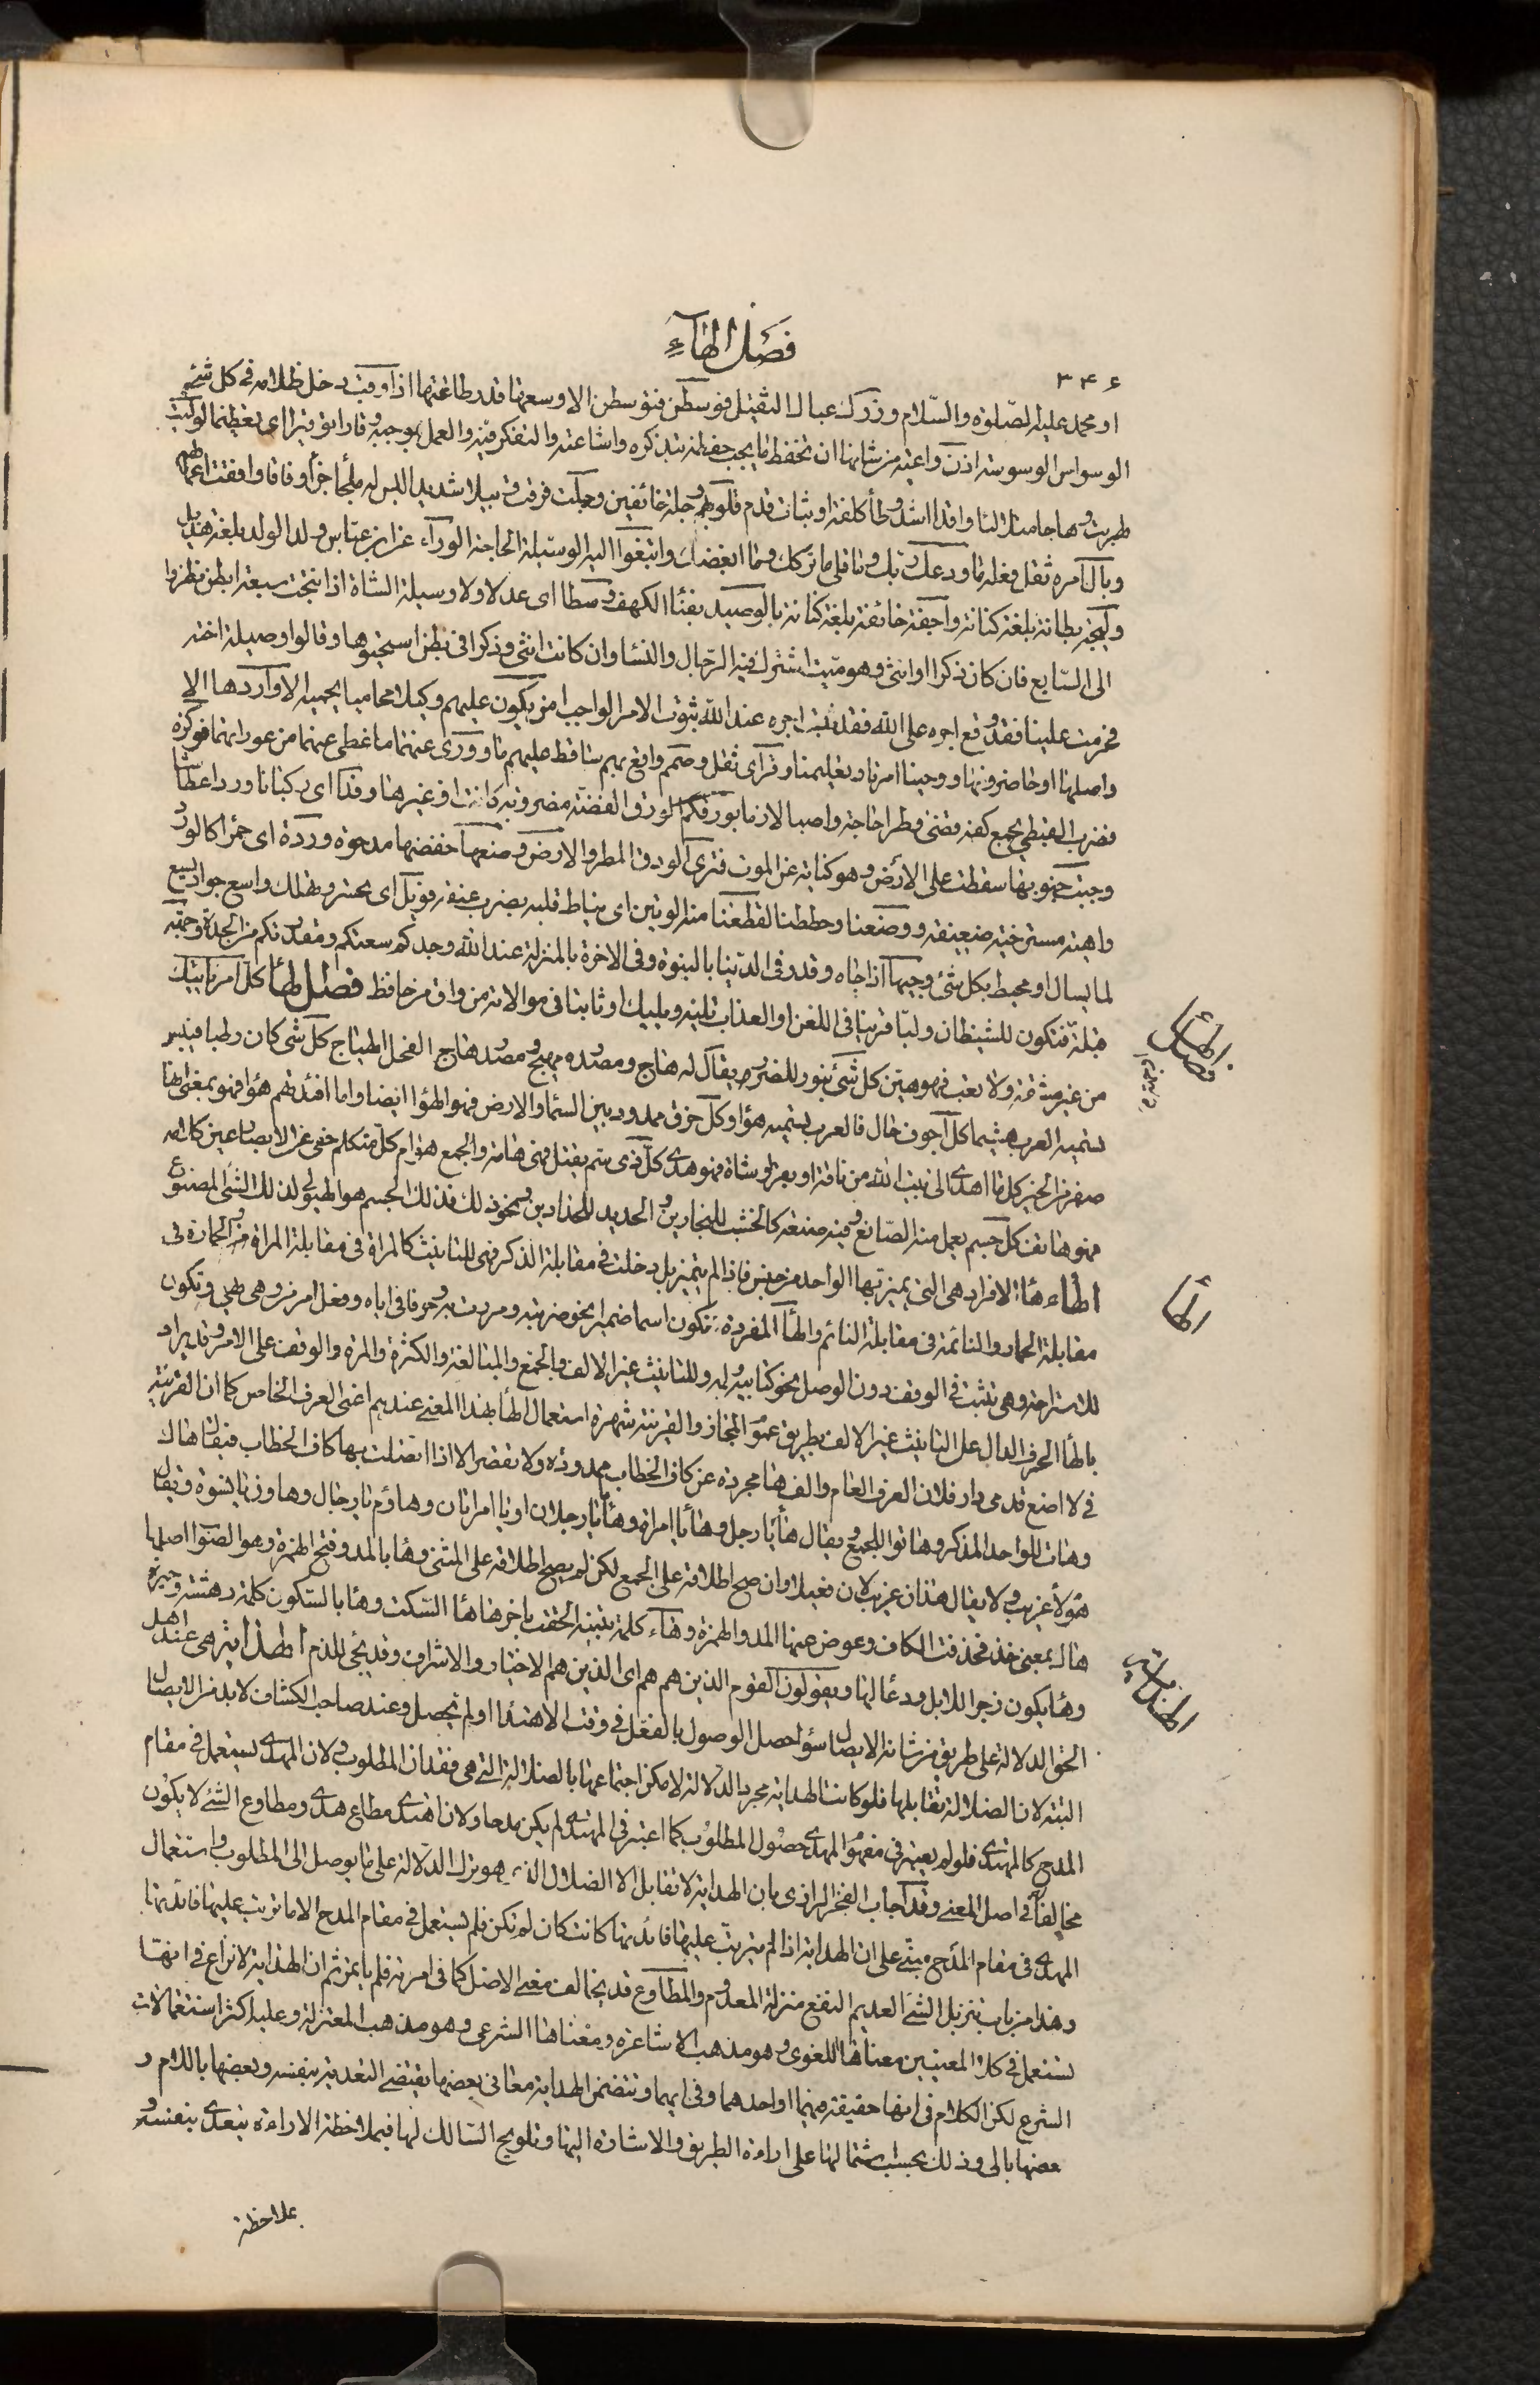 فصل الهاء
٣٤٦
او محمد عليه الصلوة والسلام وزرك عبأك الثقيل فوسطن فتوسطن الا وسعها قدر طاقتها اذا وقب دخل ظلامه في كل شئ
الوسواس الوسوسة اذن واعية من شانها ان تحفظ ما يجب حفظه بتذكره واشاعته والتفكر فيه والعمل بموجبه وقارا توقيرا اى تعظيما لو ليت
وطئا كلفة او ثبات قدم قلوبهم وجلة خائفين وجلت فرقت وبيلا شديدا ليس له ملجأ جزاء وفاقا وافقت اعمالهم
وبال امره ثقل فعله ما ودعك ربك وما قلى ما تركك وما ابغضك وابتغوا اليه الوسيلة الحاجة الوراء عن ابن عباس ولد الولد بلغة هذيل
وليجة بطانة بلغة كنانة واجفة خائفة بلغة كنانة بالوصيد بفناء الكهف وسطا اى عدلا ولا وسيلة الشاة اذا نتجت سبعة ابطن نظروا
الى السابع فان كان ذكرا او انثى وهو ميت اشترك فيه الرجال والنساء وان كانت انثى وذكرا في بطن استحيوها وقالوا وصيلة اخته
فحرمت علينا فقد وقع اجره على الله فقد ثبت اجره عند الله ثبوت الامر الواجب امن يكون عليهم وكيلا محاميا يحميه الا واردها الا
واصلها او حاضر دونها ووحينا امرنا وتعليمنا وقرا اى ثقل وصمم واقع بهم ساقط عليهم ما وورى عنهما ما غطى عنهما من عوراتهما فوكزه
فضرب القبطى بجمع كفه فقضى وطرا حاجة واصبا لازما بورقكم الورق الفضة مضروبة كانت او غيرها وفدا اى ركبانا وردا عطاشا
وجبت جنوبها سقطت على الارض وهو كناية عن الموت فترى الودق المطر والارض وضعها خفضها مدحوة وردة اى حمرا كالورد
واهية مسترخية ضعيفة ووضعنا وحططنا لقطعنا منه الوتين اى نياط قلبه بضرب عنقه فويل اى تحسر وهلك واسع جواد يسع
لما يسال او محيط بكل شئ وجيها اذا جاه وقدر في الدنيا بالنبوة وفي الاخرة بالمنزلة عند الله وجدكم سعتكم ومقدرتكم من الجدة وجهة
قبلة فتكون للشيطان وليا قرينا في اللعن او العذاب تليه ويليك او ثابتا في موالاته من واق من حافظ فصل الهاء كل امر ياتيك
من غير مشقة ولا تعب فهو هين كل شئ يثور للضرر يقال له هاج ومصدره هيج ومصدر هاج الفحل الهياج كل شئ كان رطبا فيبس
تسميه العرب هشيما كل اجوف خال فالعرب تسميه هواء وكل خرق ممدود بين السماء والارض فهو الهواء ايضا واما افئدتهم هواء فهو بمعنى انها
صفر من الخير كل ما اهدى الى بيت الله من ناقة او بعير او شاة فهو هدى كل ذى سم يقتل فهى هامة والجمع هوام كل متكلم خفى عن الابصار عين كلامه
فهو هاتف كل جسم يعمل منه الصانع وفيه صنعه كالخشب للنجارين والحديد للحدادين ونحو ذلك فذلك الجسم هو الهيولى لذلك الشئ المصنوع
الهاء هاء الافراد هى التى يميز بها الواحد من جنس فاذا لم يتميز بل دخلت في مقابلة الذكر فهى للتانيث كالمراة في مقابلة المراء والحمارة في
مقابلة الحمار والنائمة في مقابلة النائم والهاء المفردة تكون اسما ضميرا نحو ضربته ومررت به وحرفا في اياه وفعل امر من وهى يهى وتكون
للاستراحة وهى تثبت في الوقف دون الوصل نحو كتابيه ولمه وللتانيث غير الالف والجمع والمبالغة والكثرة والمرة والوقف على الامر وقد يراد
بالهاء الحرف الدال على التانيث غير الالف بطريق عموم المجاز والقرينة شهرة استعمال الهاء بهذا المعنى عندهم اعنى العرف الخاص كما ان القرينة
في لا اضع قدمى دار فلان العرف العام والف ها مجردة عن كاف الخطاب ممدودة ولا تقصر الا اذا اتصلت بها كاف الخطاب فيقال هاك
وهات للواحد المذكر وهاتوا للجمع يقال هاء يا رجل وهاء يا امراة وهاءا يا رجلان او يا امراتان وهاؤم يا رجال وهاون يا نسوة ويقال
هؤلاء غريب ولا يقال هذان غريب لان فعيلا وان صح اطلاقه على الجمع لكن لم يصح اطلاقه على المثنى وها بالمد وفتح الهمزة وهو الصواب اصلها
هاك بمعنى خذ فحذفت الكاف وعوض عنها المد والهمزة وهاء كلمة تنبيه الحقت باخرها هاء السكت وها بالسكون كلمة دهشة وحيرة
وهاء يكون زجرا للابل ودعاء لها ويقولون القوم الذين هم هم اى الذين هم الاخيار والاشراف وقد يجئ للذم الهداية هى عند اهل
الحق الدلالة على طريق من شانه الايصال سواء حصل الوصول بالفعل في وقت الاهتداء او لم يحصل وعند صاحب الكشاف لا بد من الايصال
البتة لان الضلالة تقابلها فلو كانت الهداية مجرد الدلالة لامكن اجتماعها بالضلالة التى هى فقدان المطلوب ولان المهدى يستعمل في مقام
المدح كالمهتدى فلو لم يعتبر في مفهوم المهدى حصول المطلوب كما اعتبر في المهتدى لم يكن مدحا ولان اهتدى مطاوع هدى ومطاوع الشئ لا يكون
مخالفا في اصل المعنى وقد اجاب الفخر الرازى بان الهداية لا تقابل الا الضلال الذى هو ترك الدلالة على ما يوصل الى المطلوب واستعمال
المهدى في مقام المدح مبنى على ان الهداية اذا لم يترتب عليها فائدتها كانت كان لم تكن فلم يستعمل في مقام المدح الا ما ترتب عليها فائدتها
وهذا من باب تنزيل الشئ العديم النفع منزلة المعدوم والمطاوع قد يخالف معنى الاصل كما في امرته فلم ياتمر ثم ان الهداية لا نزاع في انها
تستعمل في كلا المعنيين معناها اللغوى وهو مذهب الاشاعرة ومعناها الشرعى وهو مذهب المعتزلة وعليه اكثر استعمالات
الشرع لكن الكلام في انها حقيقة فيهما او احدهما وفي ايهما وتتضمن الهداية معانى بعضها يقتضى التعدية بنفسه وبعضها باللام و
بعضها بالى وذلك بحسب اشتمالها على اراءة الطريق والاشارة اليها وتلويح السالك لها فبملاحظة الاراءة يتعدى بنفسه و
بملاحظة
فصل الهاء
الهاء
الهداية